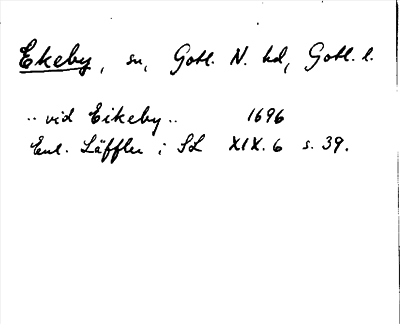 Ekeby, sn, Gotl. N. hd, Gotl. l.
.. vid Eikeby .. 1696
Enl. Läffler i SL XIX. 6 s. 39.